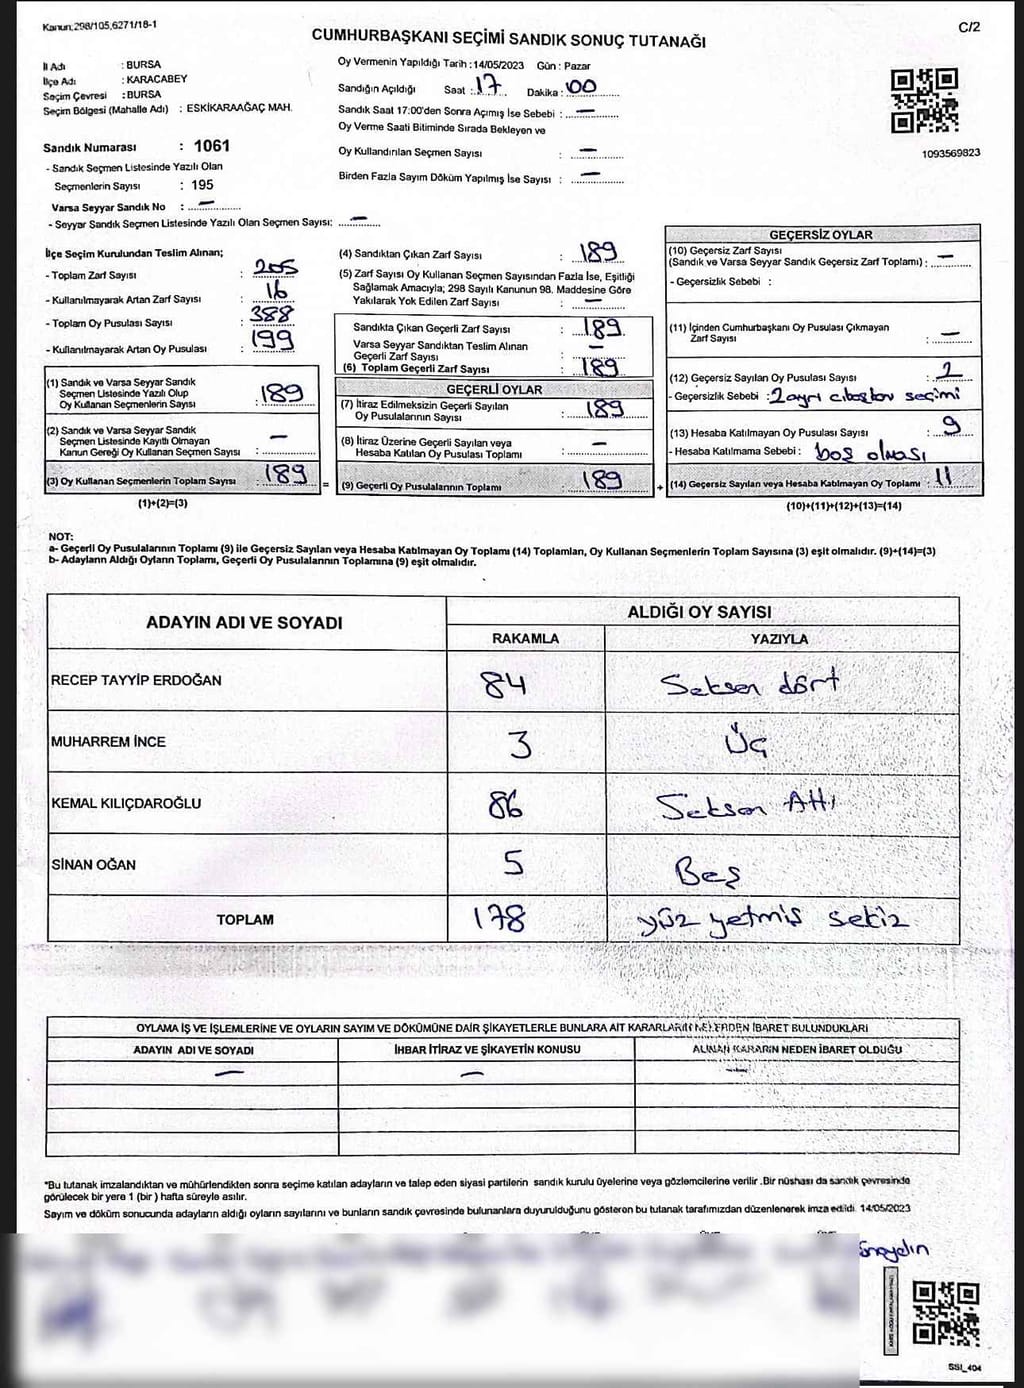 Kanun:298/105,6271/18-1
C/2
CUMHURBAŞKANI SEÇİMİ SANDIK SONUÇ TUTANAĞI
İl Adı : BURSA
İlçe Adı : KARACABEY
Seçim Çevresi : BURSA
Seçim Bölgesi (Mahalle Adı) : ESKİKARAAĞAÇ MAH.
Sandık Numarası : 1061
- Sandık Seçmen Listesinde Yazılı Olan
Seçmenlerin Sayısı : 195
Varsa Seyyar Sandık No : —
- Seyyar Sandık Seçmen Listesinde Yazılı Olan Seçmen Sayısı: —
Oy Vermenin Yapıldığı Tarih :14/05/2023 Gün : Pazar
Sandığın Açıldığı Saat : 17 Dakika : 00
Sandık Saat 17:00'den Sonra Açımış İse Sebebi : —
Oy Verme Saati Bitiminde Sırada Bekleyen ve
Oy Kullandırılan Seçmen Sayısı : —
Birden Fazla Sayım Döküm Yapılmış İse Sayısı : —
1093569823
İlçe Seçim Kurulundan Teslim Alınan;
- Toplam Zarf Sayısı : 205
- Kullanılmayarak Artan Zarf Sayısı : 16
- Toplam Oy Pusulası Sayısı : 388
- Kullanılmayarak Artan Oy Pusulası : 199
(1) Sandık ve Varsa Seyyar Sandık
Seçmen Listesinde Yazılı Olup
Oy Kullanan Seçmenlerin Sayısı : 189
(2) Sandık ve Varsa Seyyar Sandık
Seçmen Listesinde Kayıtlı Olmayan
Kanun Gereği Oy Kullanan Seçmen Sayısı : —
(3) Oy Kullanan Seçmenlerin Toplam Sayısı : 189 =
(1)+(2)=(3)
(4) Sandıktan Çıkan Zarf Sayısı : 189
(5) Zarf Sayısı Oy Kullanan Seçmen Sayısından Fazla İse, Eşitliği
Sağlamak Amacıyla; 298 Sayılı Kanunun 98. Maddesine Göre
Yakılarak Yok Edilen Zarf Sayısı : —
Sandıkta Çıkan Geçerli Zarf Sayısı : 189
Varsa Seyyar Sandıktan Teslim Alınan
Geçerli Zarf Sayısı : —
(6) Toplam Geçerli Zarf Sayısı : 189
GEÇERLİ OYLAR
(7) İtiraz Edilmeksizin Geçerli Sayılan
Oy Pusulalarının Sayısı : 189
(8) İtiraz Üzerine Geçerli Sayılan veya
Hesaba Katılan Oy Pusulası Toplamı : —
(9) Geçerli Oy Pusulalarının Toplamı : 189 +
GEÇERSİZ OYLAR
(10) Geçersiz Zarf Sayısı
(Sandık ve Varsa Seyyar Sandık Geçersiz Zarf Toplamı) : —
- Geçersizlik Sebebi :
(11) İçinden Cumhurbaşkanı Oy Pusulası Çıkmayan
Zarf Sayısı : —
(12) Geçersiz Sayılan Oy Pusulası Sayısı : 2
- Geçersizlik Sebebi : 2 ayrı seçimi
(13) Hesaba Katılmayan Oy Pusulası Sayısı : 9
- Hesaba Katılmama Sebebi : boş olması
(14) Geçersiz Sayılan veya Hesaba Katılmayan Oy Toplamı : 11
(10)+(11)+(12)+(13)=(14)
NOT:
a- Geçerli Oy Pusulalarının Toplamı (9) ile Geçersiz Sayılan veya Hesaba Katılmayan Oy Toplamı (14) Toplamları, Oy Kullanan Seçmenlerin Toplam Sayısına (3) eşit olmalıdır. (9)+(14)=(3)
b- Adayların Aldığı Oyların Toplamı, Geçerli Oy Pusulalarının Toplamına (9) eşit olmalıdır.
ADAYIN ADI VE SOYADI ALDIĞI OY SAYISI
RAKAMLA YAZIYLA
RECEP TAYYİP ERDOĞAN 84 Seksen dört
MUHARREM İNCE 3 Üç
KEMAL KILIÇDAROĞLU 86 Seksen Altı
SİNAN OĞAN 5 Beş
TOPLAM 178 yüz yetmiş sekiz
OYLAMA İŞ VE İŞLEMLERİNE VE OYLARIN SAYIM VE DÖKÜMÜNE DAİR ŞİKAYETLERLE BUNLARA AİT KARARLARIN NELERDEN İBARET BULUNDUKLARI
ADAYIN ADI VE SOYADI İHBAR İTİRAZ VE ŞİKAYETİN KONUSU ALINAN KARARIN NEDEN İBARET OLDUĞU
— — —
*Bu tutanak imzalandıktan ve mühürlendikten sonra seçime katılan adayların ve talep eden siyasi partilerin sandık kurulu üyelerine veya gözlemcilerine verilir .Bir nüshası da sandık çevresinde
görülecek bir yere 1 (bir ) hafta süreyle asılır.
Sayım ve döküm sonucunda adayların aldığı oyların sayılarını ve bunların sandık çevresinde bulunanlara duyurulduğunu gösteren bu tutanak tarafımızdan düzenlenerek imza edildi. 14/05/2023
SSI_404